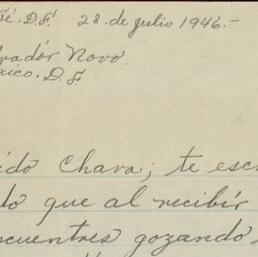 fé. D.F. 28. de julio 1946.-
vadór Novo.
xico. D.F.
ido Chava; te esc
do que al recibir
cuentres gozando